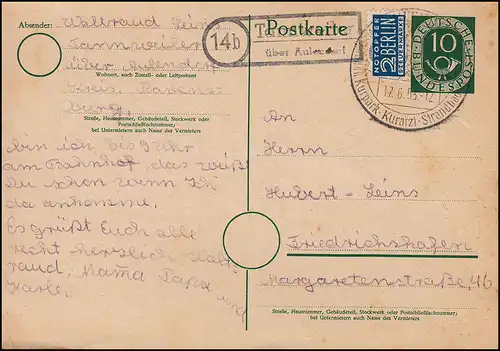 Absender: Waltraud Leins
Tannweiler
über Aulendorf
Wohnort, auch Zustell- oder Leitpostamt
Kreis Ravens-
burg,
Straße, Hausnummer, Gebäudeteil, Stockwerk oder
Postschließfachnummer;
bei Untermietern auch Name des Vermieters
bin ich bis 9 Uhr
am Bahnhof, das
Du schon wann Ich
da ankomme.
Es grüßt Euch alle
recht herzlich Walt-
raud, Mama Papa und
Karle.
14b
über Aulendorf
Postkarte
NOTOPFER
2 BERLIN
STEUERMARKE
DEUTSCHE
BUNDESPOST
10
Kurpark · Kurarzt · Strandbad
An
Herrn
Hubert Leins
Friedrichshafen
Margaretenstraße, 46
Straße, Hausnummer, Gebäudeteil, Stockwerk oder Postschließfachnummer;
bei Untermietern auch Name des Vermieters